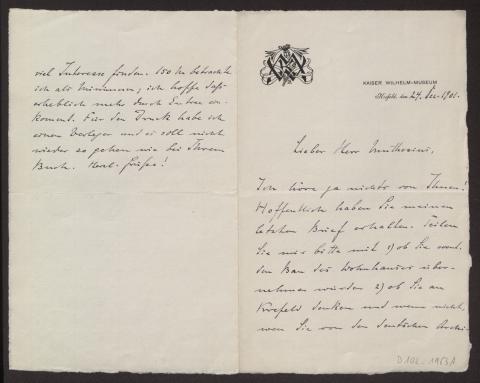 KAISER WILHELM-MUSEUM
Krefeld, den 24. Dec. 1901.
Lieber Herr Muthesius,
Ich höre ja nichts von Ihnen!
Hoffentlich haben Sie meinen
letzten Brief erhalten. Teilen
Sie mir bitte mit 1) ob Sie event.
den Bau des Wohnhauses über-
nehmen würden 2) ob Sie an
Krefeld denken und wenn nicht,
wen Sie von den deutschen Archi-
viel Interesse fanden. 150 M betrachte
ich als Minimum, ich hoffe daß
erheblich mehr durch Entree ein-
kommt. Für den Druck habe ich
einen Verleger und es soll nicht
wieder so gehen wie bei Ihrem
Buch. Herzl. Grüße!
D 102 - 1953 A